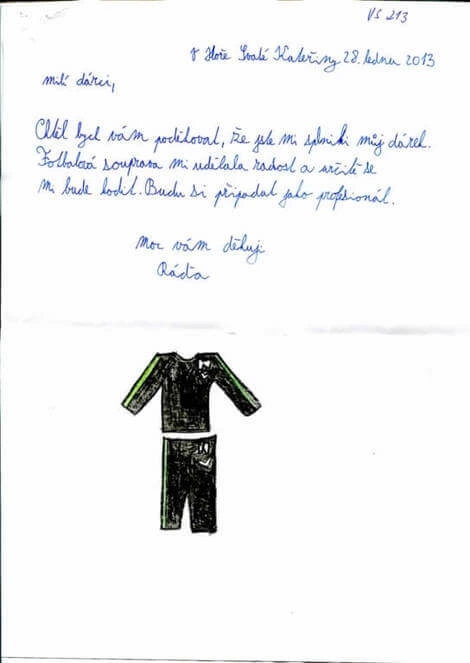 VS 213
V Hoře Svaté Kateřiny 28. lednu 2013
milí dárci,
Chtěl bych vám poděkovat, že jste mi splnili můj dárek.
Fotbalová souprava mi udělala radost a určitě se
mi bude hodit. Budu si připadat jako profesionál.
Moc vám děkuji
Ráďa